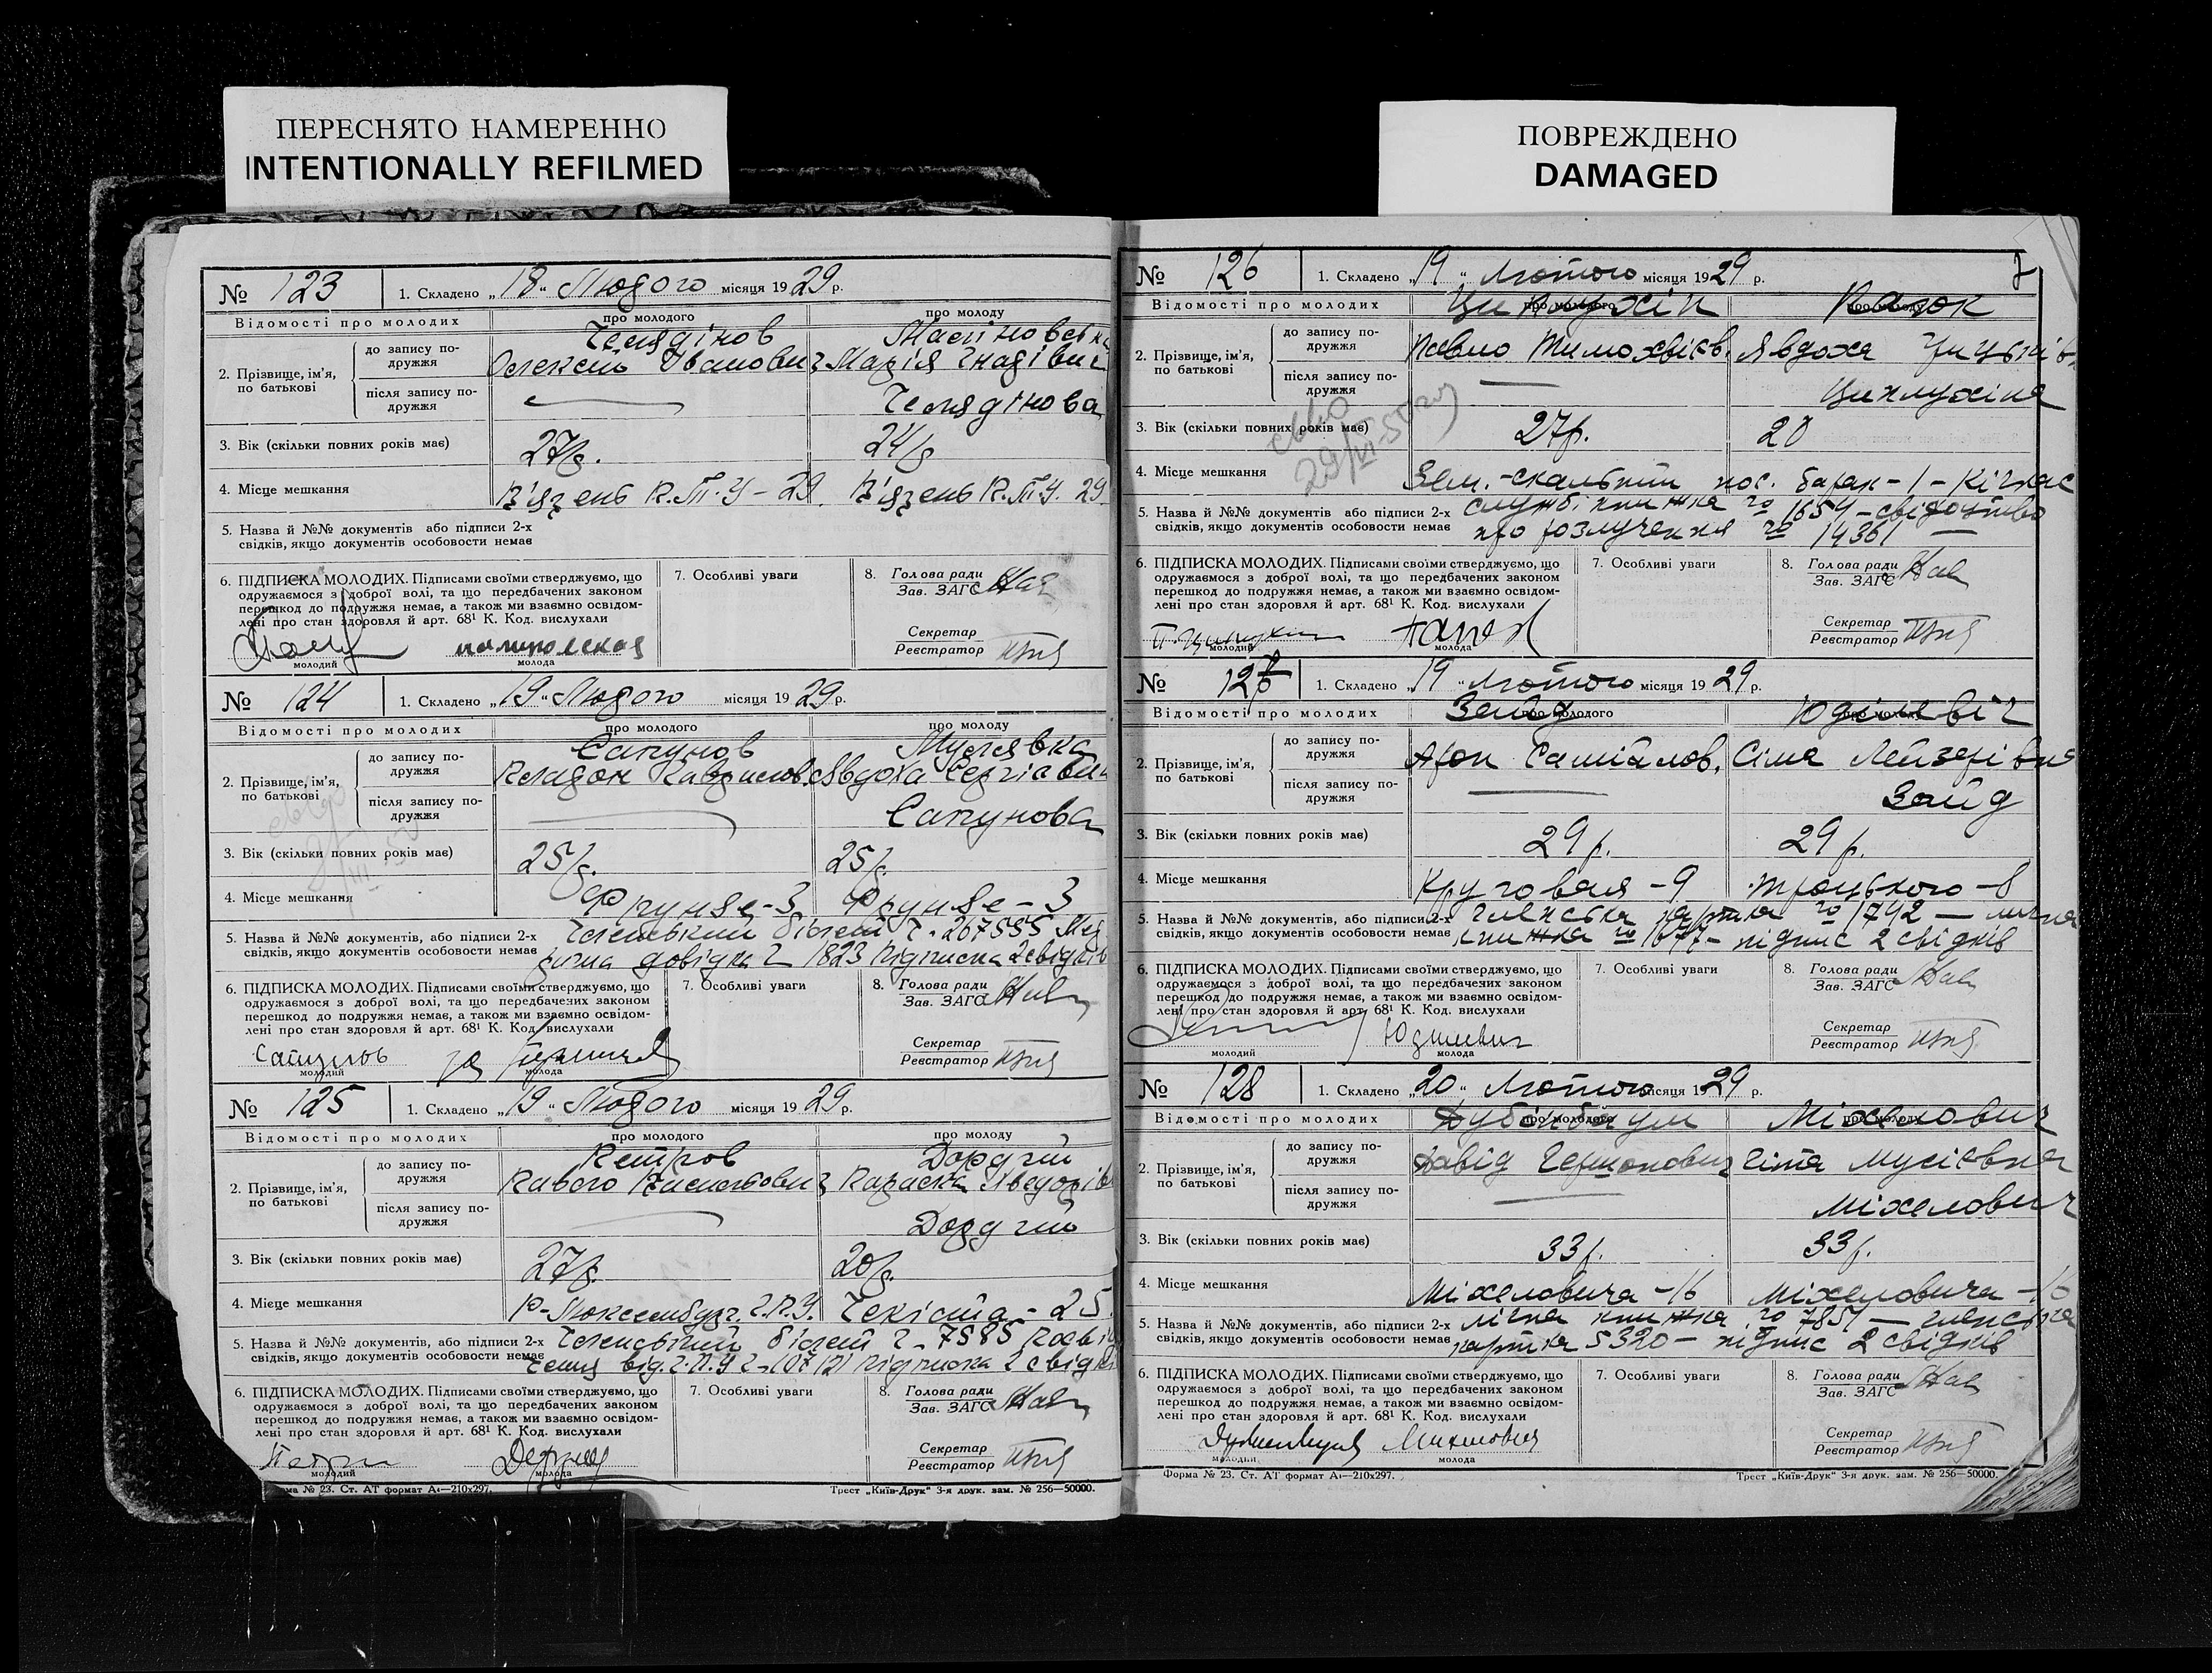 ПЕРЕСНЯТО НАМЕРЕННО
INTENTIONALLY REFILMED
ПОВРЕЖДЕНО
DAMAGED
№ 123 1. Складено „18“ Людого місяця 1929 р.
Відомості про молодих про молодого про молоду
2. Прізвище, ім'я, по батькові
до запису по-
дружжя
Челядінов
Олексій Іванович Марія
після запису по-
дружжя
Челядінова
3. Вік (скільки повних років має) 27р. 24р
4. Місце мешкання В'язень 29 В'язень 29
5. Назва й №№ документів або підписи 2-х
свідків, якщо документів особовости немає
6. ПІДПИСКА МОЛОДИХ. Підписами своїми стверджуємо, що
одружаємося з доброї волі, та що передбачених законом
перешкод до подружжя немає, а також ми взаємно освідом-
лені про стан здоровля й арт. 68¹ К. Код. вислухали
молодий молода
7. Особливі уваги
8. Голова ради
Зав. ЗАГС
Секретар
Реєстратор
№ 124 1. Складено „19“ Людого місяця 1929 р.
Відомості про молодих про молодого про молоду
2. Прізвище, ім'я, по батькові
до запису по-
дружжя
Сапунов Мулявка
Явдоха Сергієвна
після запису по-
дружжя
Сапунова
3. Вік (скільки повних років має) 25р. 25р.
4. Місце мешкання Фрунзе-3 Фрунзе-3
5. Назва й №№ документів, або підписи 2-х
свідків, якщо документів особовости немає
Членський білет Ч. 267555
довідка Ч 1823 Підписка 2 свідків
6. ПІДПИСКА МОЛОДИХ. Підписами своїми стверджуємо, що
одружаємося з доброї волі, та що передбачених законом
перешкод до подружжя немає, а також ми взаємно освідом-
лені про стан здоровля й арт. 68¹ К. Код. вислухали
Сапунов
молодий молода
7. Особливі уваги
8. Голова ради
Зав. ЗАГС
Секретар
Реєстратор
№ 125 1. Складено „19“ Людого місяця 1929 р.
Відомості про молодих про молодого про молоду
2. Прізвище, ім'я, по батькові
до запису по-
дружжя
Петров Дордгій
Параска
після запису по-
дружжя
Дордгій
3. Вік (скільки повних років має) 27р. 20р.
4. Місце мешкання Р-Люксембург. Г.П.У. Чекіста - 25
5. Назва й №№ документів, або підписи 2-х
свідків, якщо документів особовости немає
Членський білет Ч - 7585
від. Г.П.У Підписка 2 свідків
6. ПІДПИСКА МОЛОДИХ. Підписами своїми стверджуємо, що
одружаємося з доброї волі, та що передбачених законом
перешкод до подружжя немає, а також ми взаємно освідом-
лені про стан здоровля й арт. 68¹ К. Код. вислухали
молодий молода
7. Особливі уваги
8. Голова ради
Зав. ЗАГС
Секретар
Реєстратор
№ 23. Ст. АТ формат А₄—210х297. Трест „Київ-Друк“ 3-я друк. зам. № 256—50000.
№ 126 1. Складено „19“ Лютого місяця 1929 р.
Відомості про молодих про молодого про молоду
2. Прізвище, ім'я, по батькові
до запису по-
дружжя
Павло Тимохвієв. Явдоха
після запису по-
дружжя
Циплухіна
3. Вік (скільки повних років має) 27р. 20
4. Місце мешкання Зем.-скальний пос. барак-1-Кічкас
5. Назва й №№ документів або підписи 2-х
свідків, якщо документів особовости немає
служб. книжка № 1654 - свідоцтво
про розлучення № 14361 —
6. ПІДПИСКА МОЛОДИХ. Підписами своїми стверджуємо, що
одружаємося з доброї волі, та що передбачених законом
перешкод до подружжя немає, а також ми взаємно освідом-
лені про стан здоровля й арт. 68¹ К. Код. вислухали
молодий молода
7. Особливі уваги
8. Голова ради
Зав. ЗАГС
Секретар
Реєстратор
№ 127 1. Складено „19“ Лютого місяця 1929 р.
Відомості про молодих про молодого про молоду
2. Прізвище, ім'я, по батькові
до запису по-
дружжя
Зайд Юділевіч
Арон Самійлов. Сіма Лейзерівна
після запису по-
дружжя
Зайд
3. Вік (скільки повних років має) 29 р. 29 р.
4. Місце мешкання Кругова́я -9 Троцького -8
5. Назва й №№ документів, або підписи 2-х
свідків, якщо документів особовости немає
членська картка № 1742 — лична
книжка № 1677 - підпис 2 свідків
6. ПІДПИСКА МОЛОДИХ. Підписами своїми стверджуємо, що
одружаємося з доброї волі, та що передбачених законом
перешкод до подружжя немає, а також ми взаємно освідом-
лені про стан здоровля й арт. 68¹ К. Код. вислухали
Юдилевич
молодий молода
7. Особливі уваги
8. Голова ради
Зав. ЗАГС
Секретар
Реєстратор
№ 128 1. Складено „20“ Лютого місяця 1929 р.
Відомості про молодих про молодого про молоду
2. Прізвище, ім'я, по батькові
до запису по-
дружжя
Міхелович
Давід Германович Гіта Мусієвна
після запису по-
дружжя
Міхелович
3. Вік (скільки повних років має) 33р. 33р.
4. Місце мешкання Міхеловича -16 Міхеловича -16
5. Назва й №№ документів, або підписи 2-х
свідків, якщо документів особовости немає
лічна книжка № 7851 — членська
картка 5320 - підпис 2 свідків
6. ПІДПИСКА МОЛОДИХ. Підписами своїми стверджуємо, що
одружаємося з доброї волі, та що передбачених законом
перешкод до подружжя немає, а також ми взаємно освідом-
лені про стан здоровля й арт. 68¹ К. Код. вислухали
Михелович
молодий молода
7. Особливі уваги
8. Голова ради
Зав. ЗАГС
Секретар
Реєстратор
Форма № 23. Ст. АТ формат А₄—210х297. Трест „Київ-Друк“ 3-я друк. зам. № 256—50000.